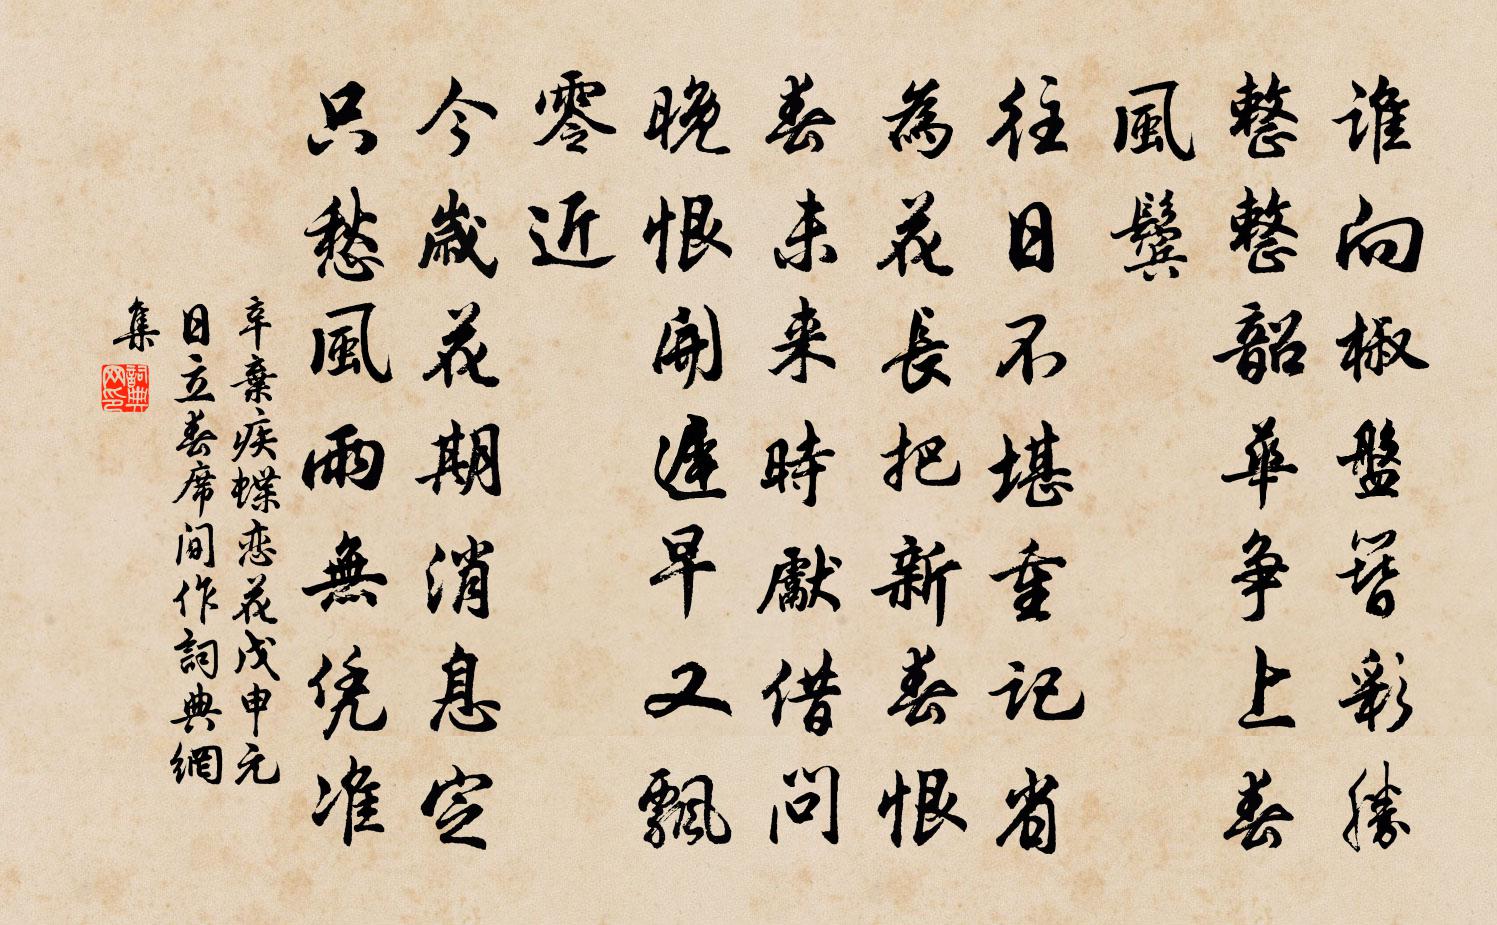 誰向椒盤簪彩勝
整整韶華爭上春
風鬢
往日不堪重記省
為花長把新春恨
春未来時獻借問
晚恨開遲早又飄
零近
今歲花期消息定
只愁風雨無凭准
辛棄疾蝶恋花戊申元
日立春席间作詞典網
集
詞典网印